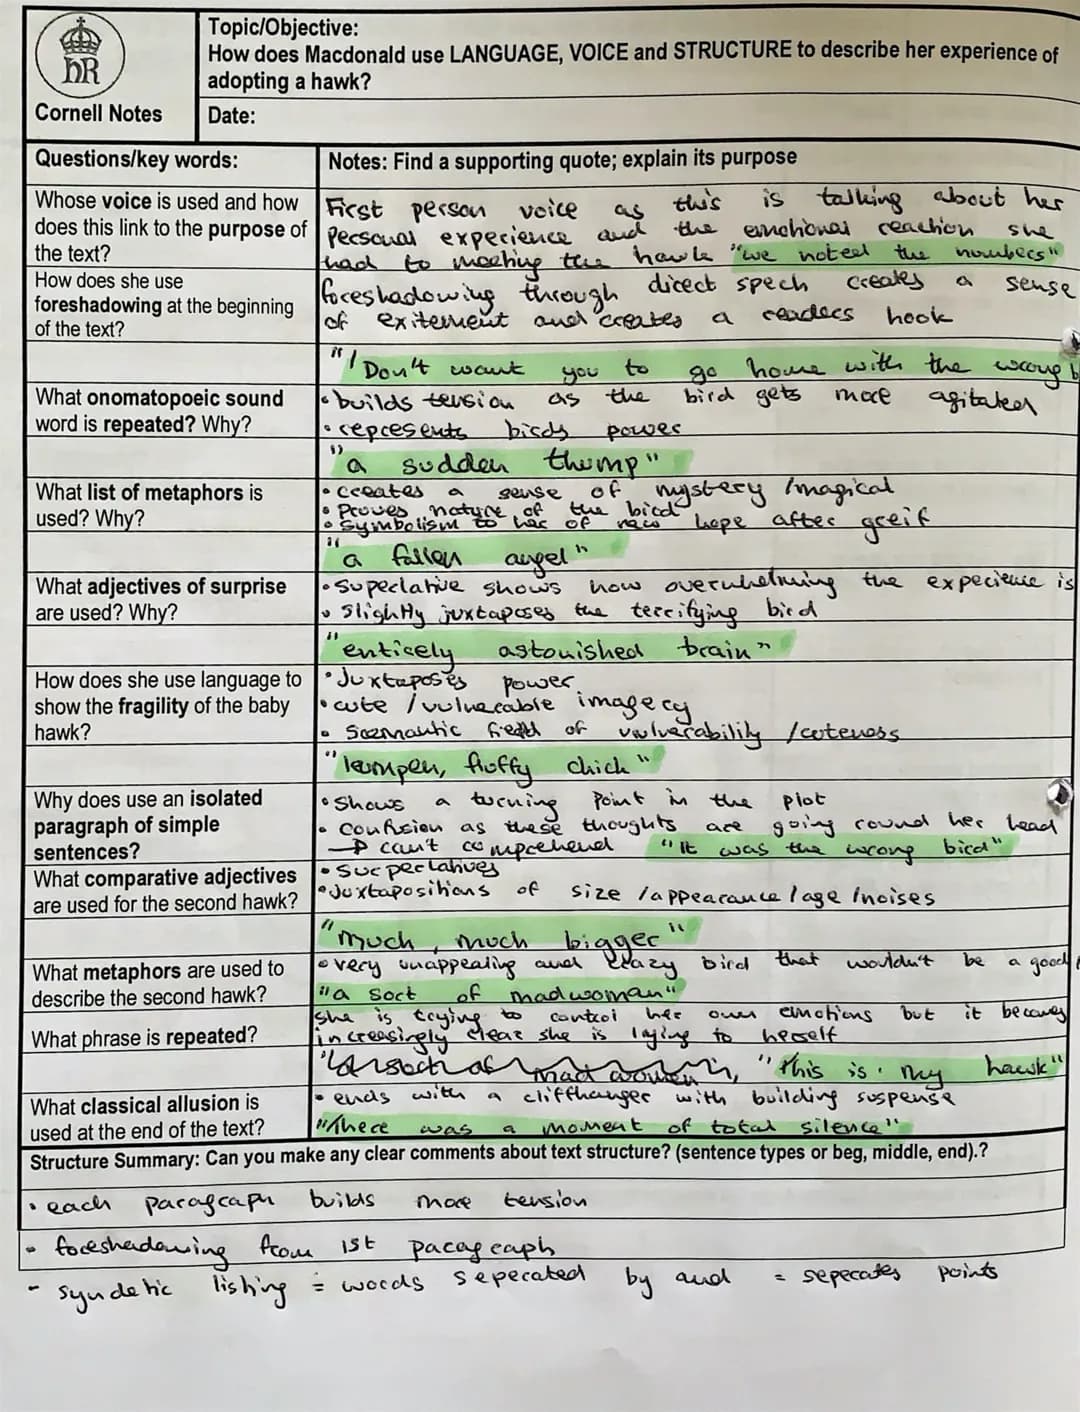 hR
Cornell Notes
Topic/Objective:
How does Macdonald use LANGUAGE, VOICE and STRUCTURE to describe her experience of
adopting a hawk?
Date:
Questions/key words:
Notes: Find a supporting quote; explain its purpose
Whose voice is used and how
does this link to the purpose of
the text?
First person voice as this is talking about her
personal experience and the emotional reaction she
had to meeting the hawk "we noted the numbers"
How does she use
foreshadowing at the beginning
of the text?
foreshadowing through direct spech creates a sense
of exitement and creates a readers hook
"I Don't want you to go home with the wrong b
What onomatopoeic sound
word is repeated? Why?
• builds tension as the bird gets more agitated
• represents birds power
"a sudden thump"
What list of metaphors is
used? Why?
• creates a sense of mystery /magical
• Proves nature of the bird
• symbolism to her of new hope after greif
"a fallen angel"
What adjectives of surprise
are used? Why?
• Superlative shows how overwhelming the experience is
• slightly juxtaposes the terrifying bird
"entirely astonished brain"
How does she use language to
show the fragility of the baby
hawk?
• Juxtaposes power
• cute / vulnerable imagery
• Semantic field of vulverability /cuteness
"lumpen, fluffy chick"
Why does use an isolated
paragraph of simple
sentences?
• Shows a turning point in the plot
• confusion as these thoughts are going round her head
→ can't comprehend "It was the wrong bird"
What comparative adjectives
are used for the second hawk?
• superlatives
• Juxtapositions of size /appearance /age /noises
"much, much bigger"
What metaphors are used to
describe the second hawk?
• very unappealing and crazy bird that wouldn't be a good
"a sort of madwoman"
What phrase is repeated?
She is trying to control her own emotions but it becomes
increasingly clear she is lying to herself
"this is my hawk"
What classical allusion is
used at the end of the text?
• ends with a cliffhanger with building suspense
"There was a moment of total silence"
Structure Summary: Can you make any clear comments about text structure? (sentence types or beg, middle, end).?
• each paragraph builds more tension
- foreshadowing from 1st paragraph
- syndetic listing = words seperated by and = seperates points